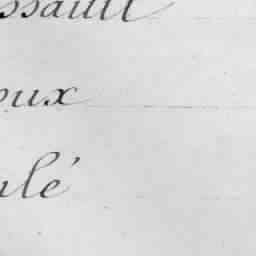 ssault
oux
lé